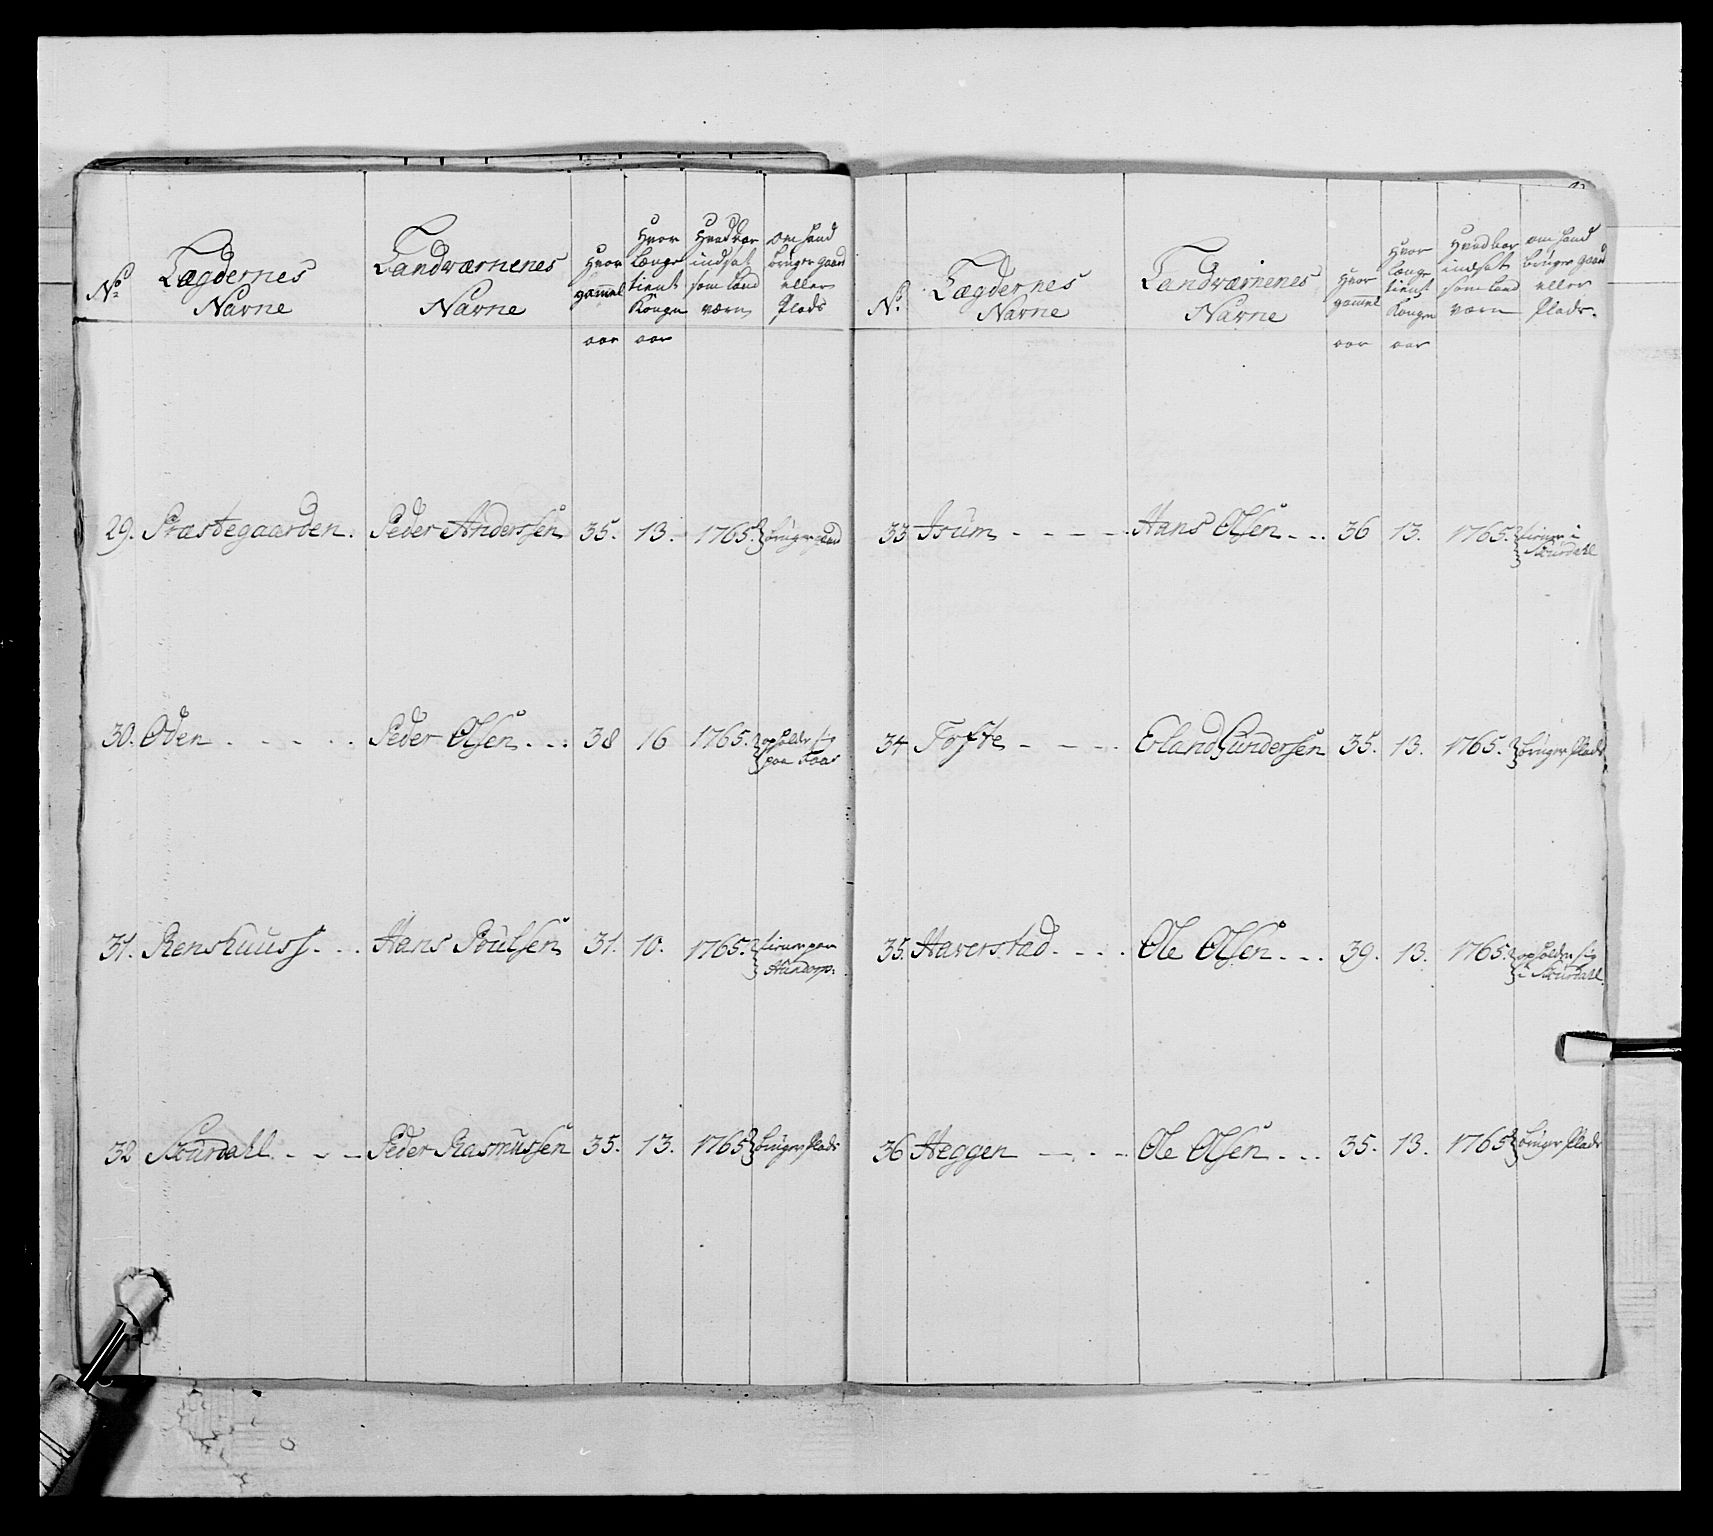 No
Lægdernes
Navne
Landværnenes
Navne
Hvor
gammel
aar
Hvor
Længe
tient
Kongen
aar
Hvad aar
indsat
som Land
værn
om hand
bruger gaard
eller
Plads
29. Præstegaarden. Peder Anderssen 35. 13. 1765. bruger gaard
30. Oden Peder Olsen 38 16 1765. opholder sig
paa
31. Renshuuss. Hans Poulsen 31. 10. 1765. tiener paa
Hundorp.
32 Sourdahl Peder Rasmussen 35. 13. 1765 bruger Plads
No.
Lægdernes
Navne
Landværnenes
Navne
Hvor
gammel
aar
Hvor
Længe
tient
Kongen
aar
Hvad aar
indsat
som Land
værn
om hand
bruger gaard
eller
Plads.
33 Isum Hans Olsen 36 13. 1765. tiener i
Sourdahl
34 Tofte Erland Gundersen 35. 13. 1765. bruger Plads
35. Haverstad Ole Olsen 39. 13. 1765. opholder sig
i Sourdahl.
36 Heggen Ole Olsen 35. 13. 1765 bruger Plads